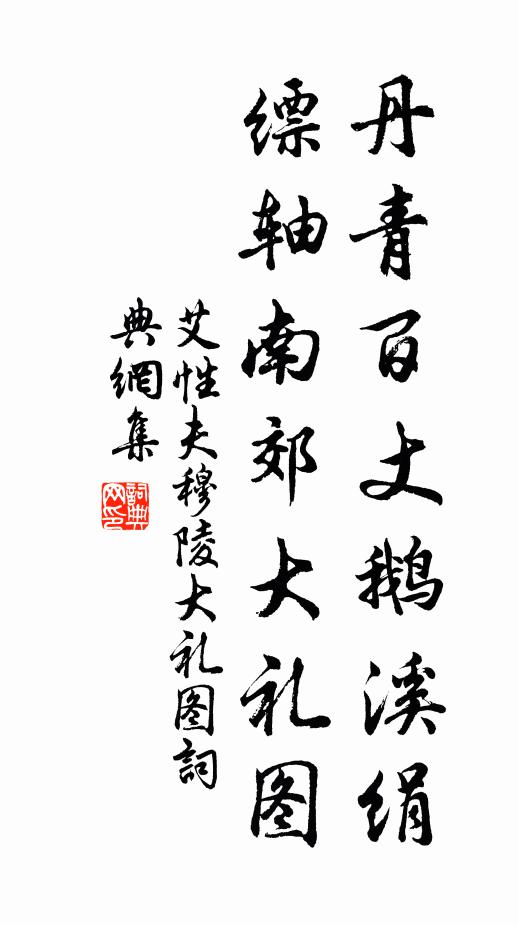 丹青百丈鹅溪绢
缥轴南郊大礼图
艾性夫穆陵大礼图詞
典網集
詞典
网印